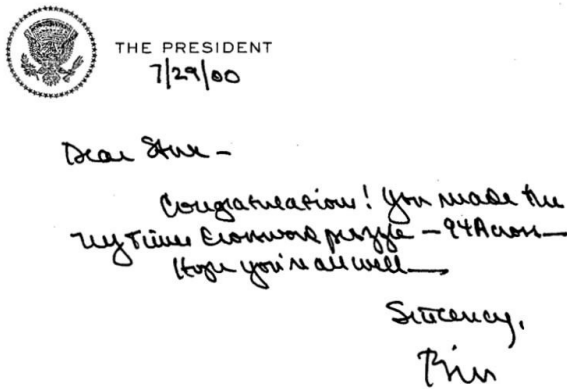 THE PRESIDENT
7/29/00
Dear Steve –
Congratulations! You made the
NY Times Crossword puzzle – 94 Across –
Hope you're all well –
Sincerely,
Bill